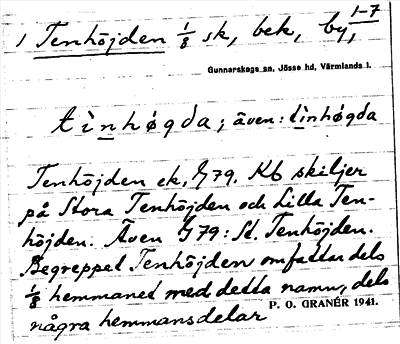 1 Tenhöjden 1/8 sk, bek, by, 1-7
Gunnarskogs sn, Jösse hd, Värmlands l.
tìnhøgda; även: lìnhøgda
Tenhöjden ek, G79. Kb skiljer
på Stora Tenhöjden och Lilla Ten-
höjden. Även G79: St. Tenhöjden.
Begreppet Tenhöjden omfattar dels
1/8 hemmanet med detta namn, dels
några hemmansdelar
P. O. GRANÉR 1941.